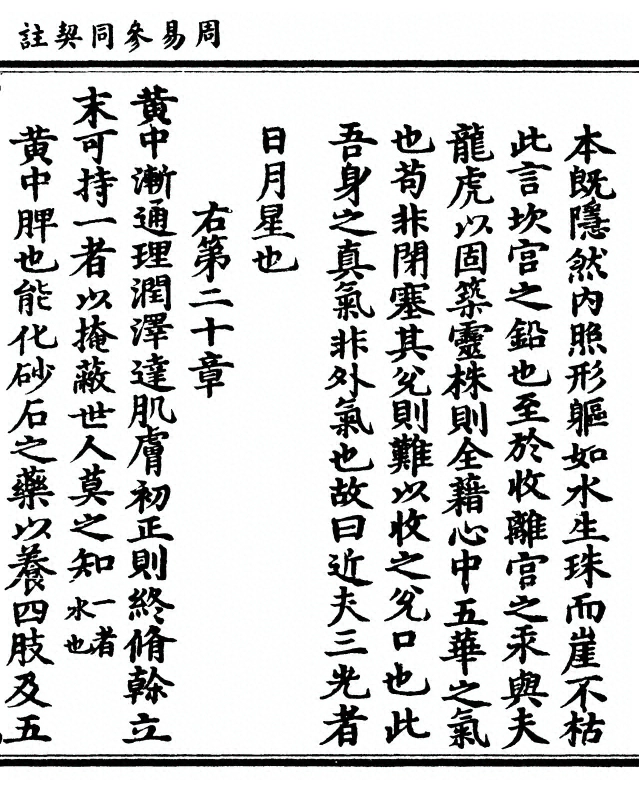 周易參同契註
本既隱然內照形軀如水生珠而崖不枯
此言坎宮之鉛也至於收離宮之汞與夫
龍虎以固築靈株則全藉心中五華之氣
也苟非閉塞其兌則難以收之兌口也此
吾身之真氣非外氣也故曰近夫三光者
日月星也
右第二十章
黃中漸通理潤澤達肌膚初正則終脩幹立
末可持一者以掩蔽世人莫之知一者水也
黃中脾也能化砂石之藥以養四肢及五